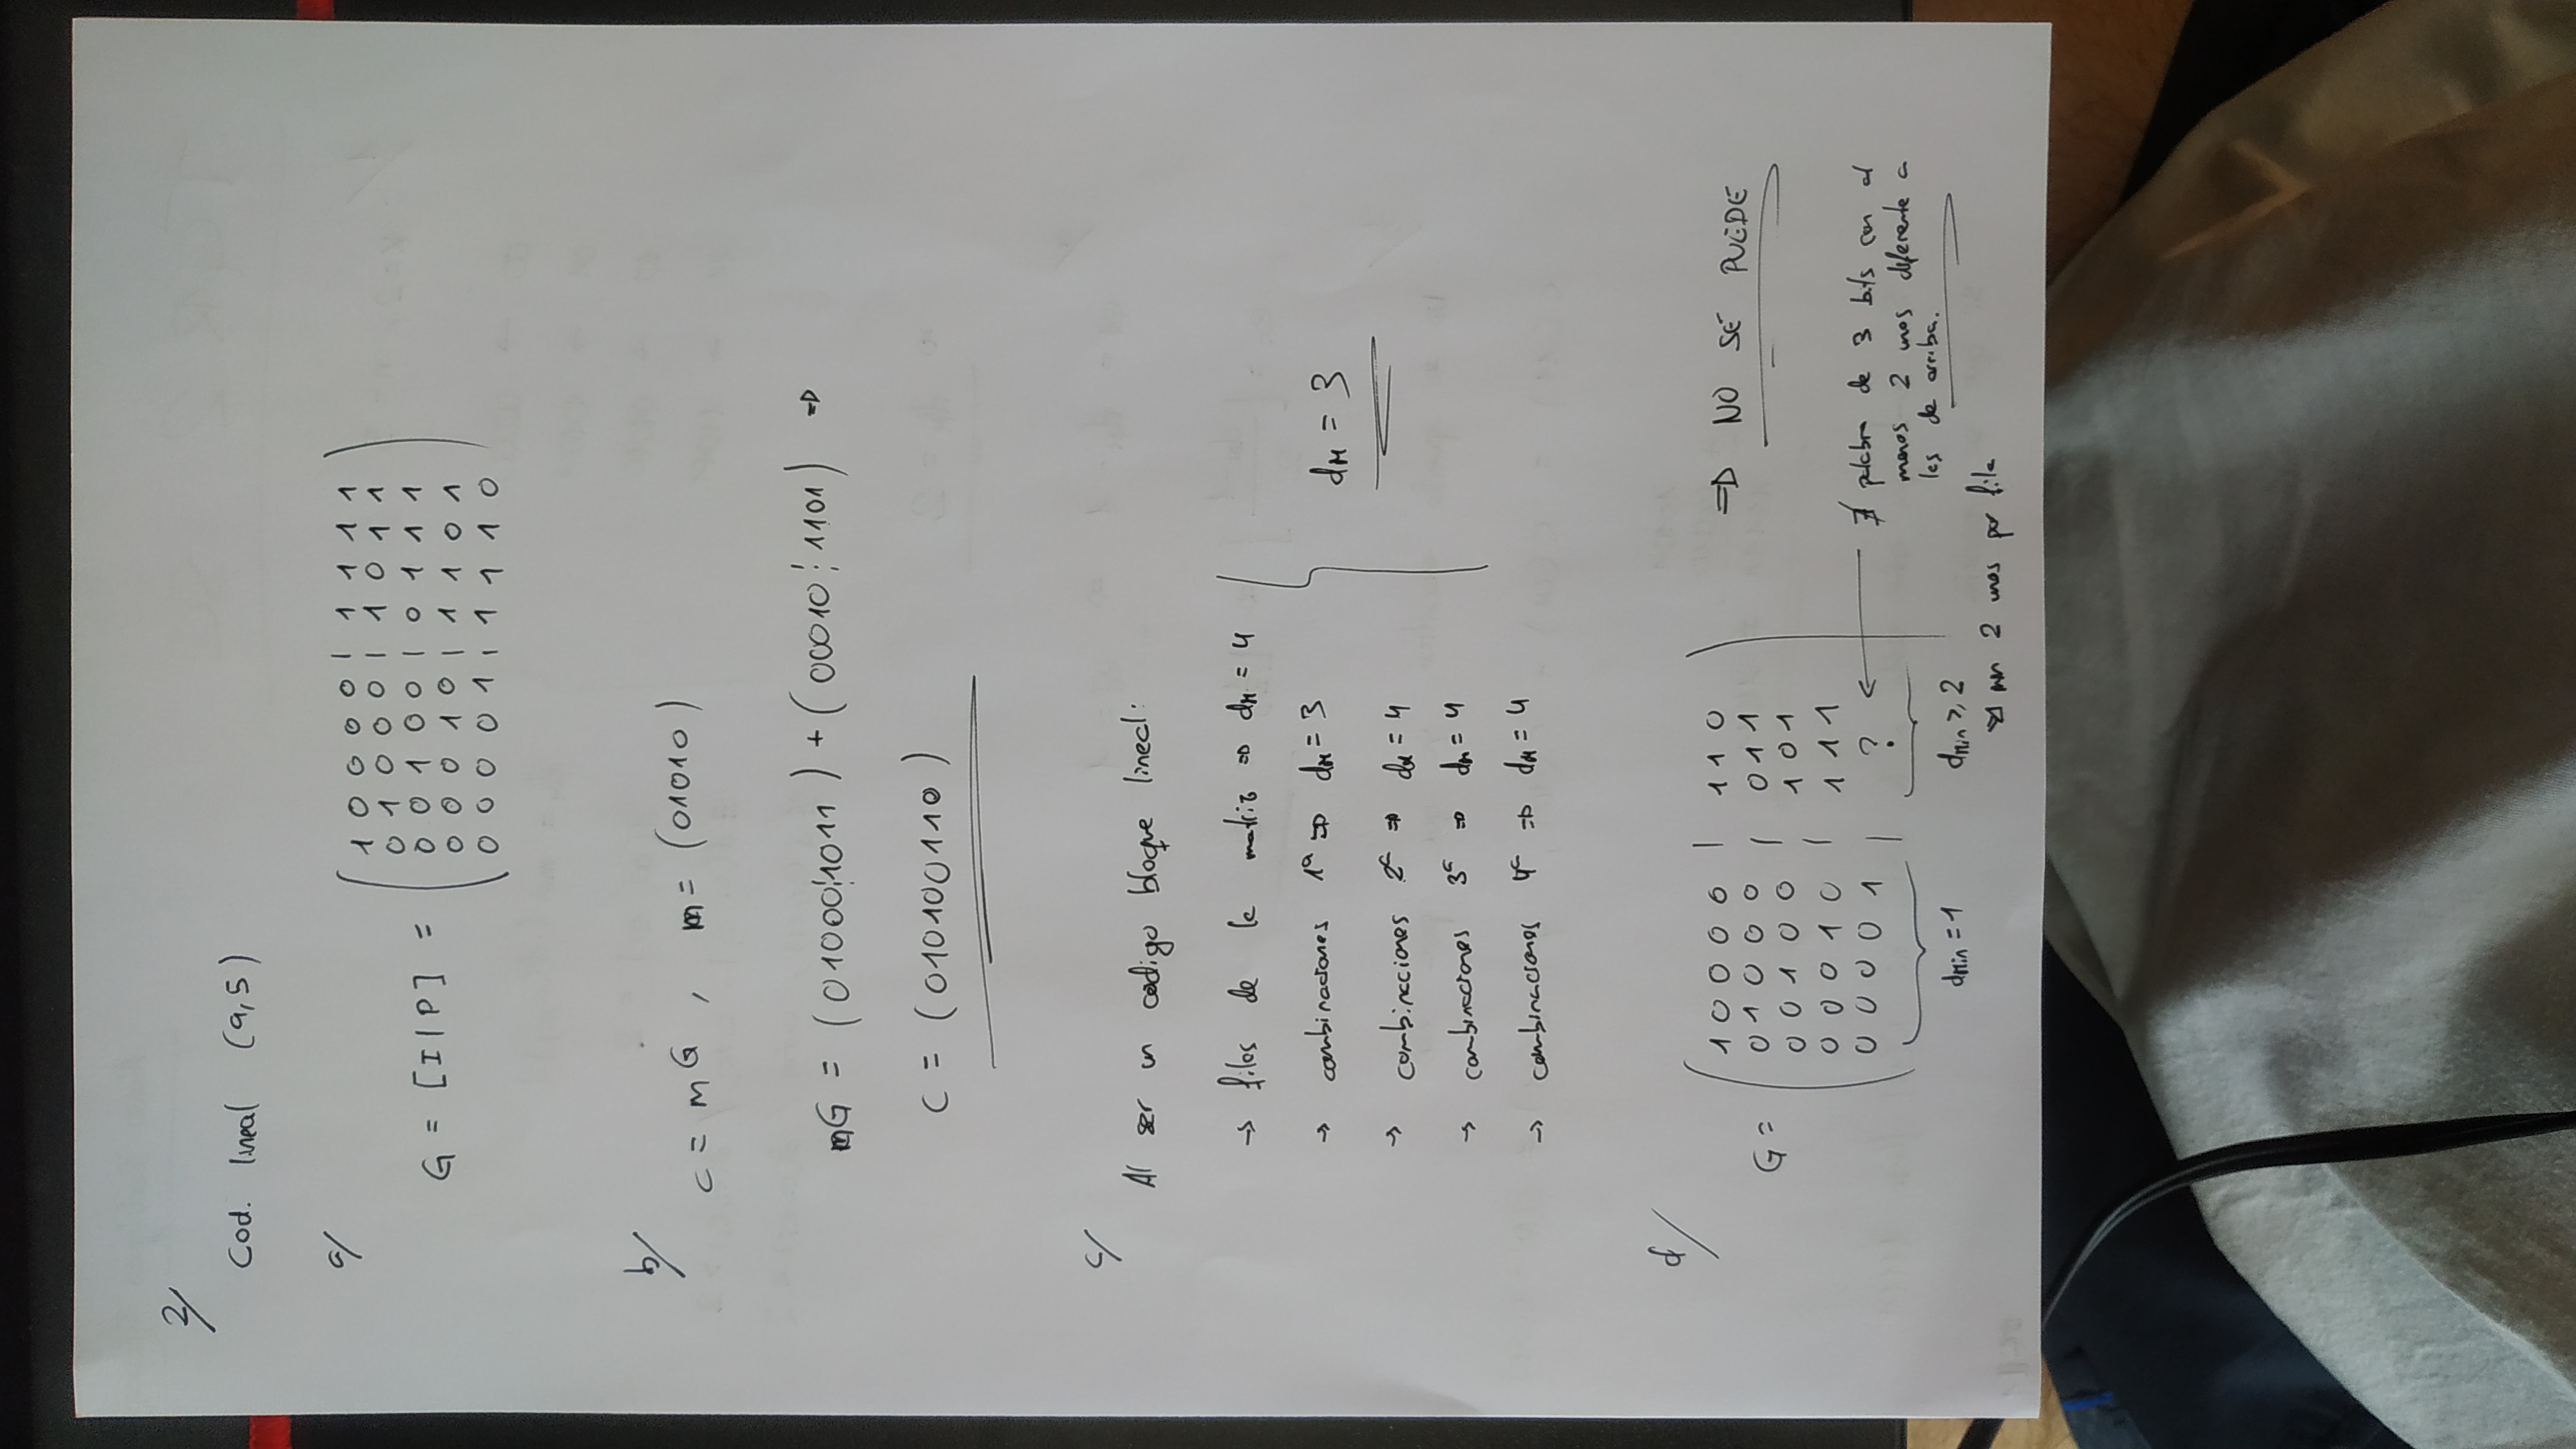 2/
Cod. lineal (9,5)
a/
G = [I|P] =
1 0 0 0 0 | 1 1 1 1
0 1 0 0 0 | 1 0 1 1
0 0 1 0 0 | 0 1 1 1
0 0 0 1 0 | 1 1 0 1
0 0 0 0 1 | 1 1 1 0
b/
c = mG , m = (01010)
mG = (01000¦1011) + (00010¦1101) ⇒
c = (010100110)
c/
Al ser un codigo bloque lineal:
→ filas de la matriz ⇒ dm = 4
→ combinaciones 1ª ⇒ dm = 3
→ combinaciones 2ª ⇒ dm = 4
→ combinaciones 3ª ⇒ dm = 4
→ combinaciones 4ª ⇒ dm = 4
dm = 3
d/
G =
1 0 0 0 0 | 1 1 0
0 1 0 0 0 | 0 1 1
0 0 1 0 0 | 1 0 1
0 0 0 1 0 | 1 1 1
0 0 0 0 1 | ?
⇒ NO SE PUEDE
∄ palabra de 3 bits con al
menos 2 unos diferente a
las de arriba.
dmin = 1
dmin ≥ 2
2 unos por fila